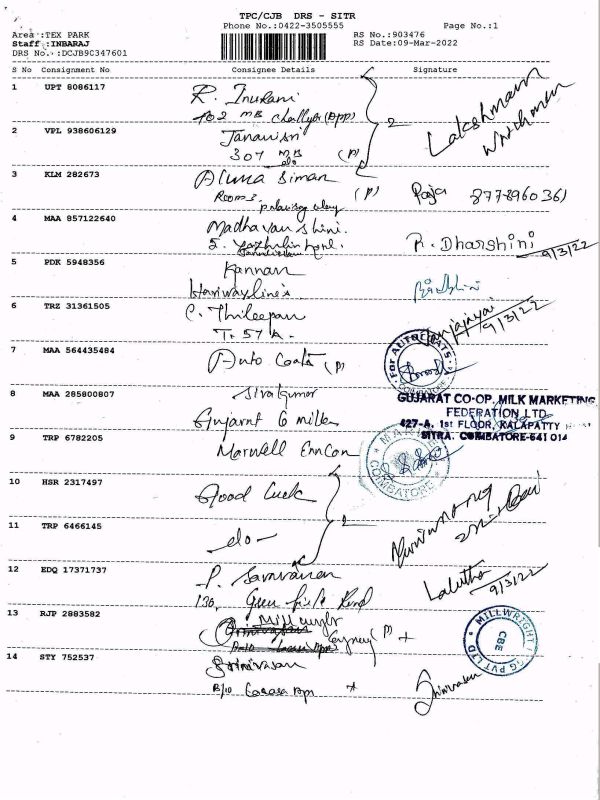 TPC/CJB DRS - SITR
Phone No.:0422-3505555
Page No.:1
Area :TEX PARK
RS No.:903476
Staff :INBARAJ
RS Date:09-Mar-2022
DRS No. :DCJB9C347601
S No Consignment No Consignee Details Signature
1 UPT 8086117 R.
102 MB (App)
2 2 VPL 938606129 Janavisri Lakshmann
307 MB (P) Watchman
do
3 KLM 282673 Siman
Rooms. (P) Raja 8778960361
4 MAA 857122640 Madhavan Shini.
5. R. Dharshini 9/3/22
5 PDK 5948356 Kannan
6 TRZ 31361505 C. Thileepan
T. 57 A. 9/3/22
7 MAA 564435484 Auto Coats (P) For AUTOCOATS COIMBATORE
8 MAA 285800807 Sivakumar
Gujarat G milk
GUJARAT CO-OP. MILK MARKETING
FEDERATION LTD
427-A, 1st FLOOR, KALAPATTY
SITRA. COIMBATORE-641 014
9 TRP 6782205 Marwell Enncon
COIMBATORE
10 HSR 2317497 Good Luck
11 TRP 6466145 -do- 2
12 EDQ 17371737 P. Saravanan
130, Green field Lalitha 9/3/22
13 RJP 2883582 (P)
MILLWRIGHT GG PVT LTD CBE
14 STY 752537 Srinivasan
B/10 Srinivasan